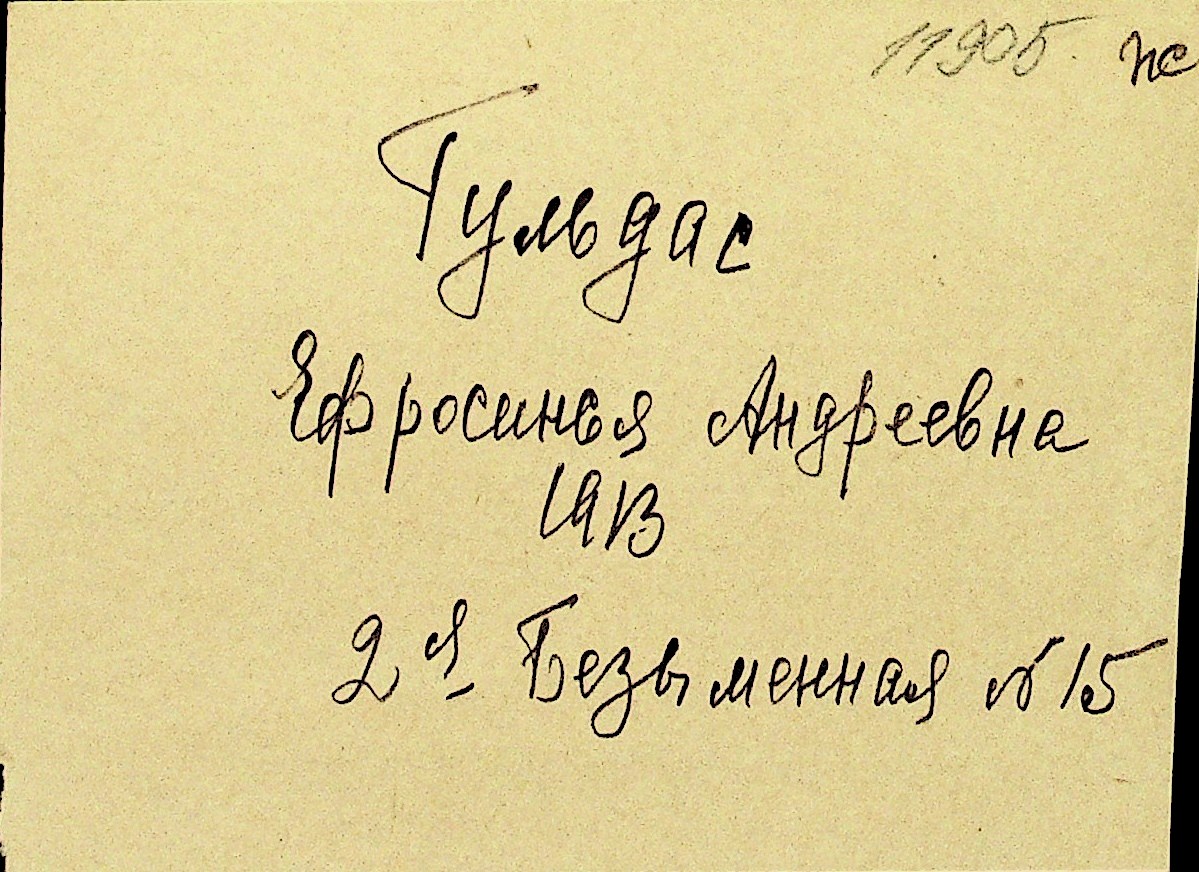 11905
Гульдас
Ефросинья Андреевна
1913
2я Безыменная №15